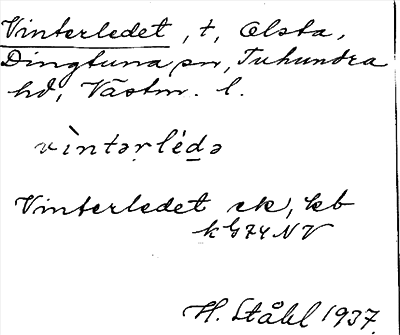 Vinterledet, t, Olsta,
Dingtuna sn, Tuhundra
hd, Västm. l.
vìntərlédə
Vinterledet ek, kb
NV
H. Ståhl 1937.